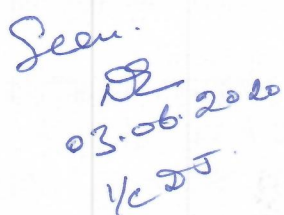 Seen.
03.06.2020
I/C DJ.